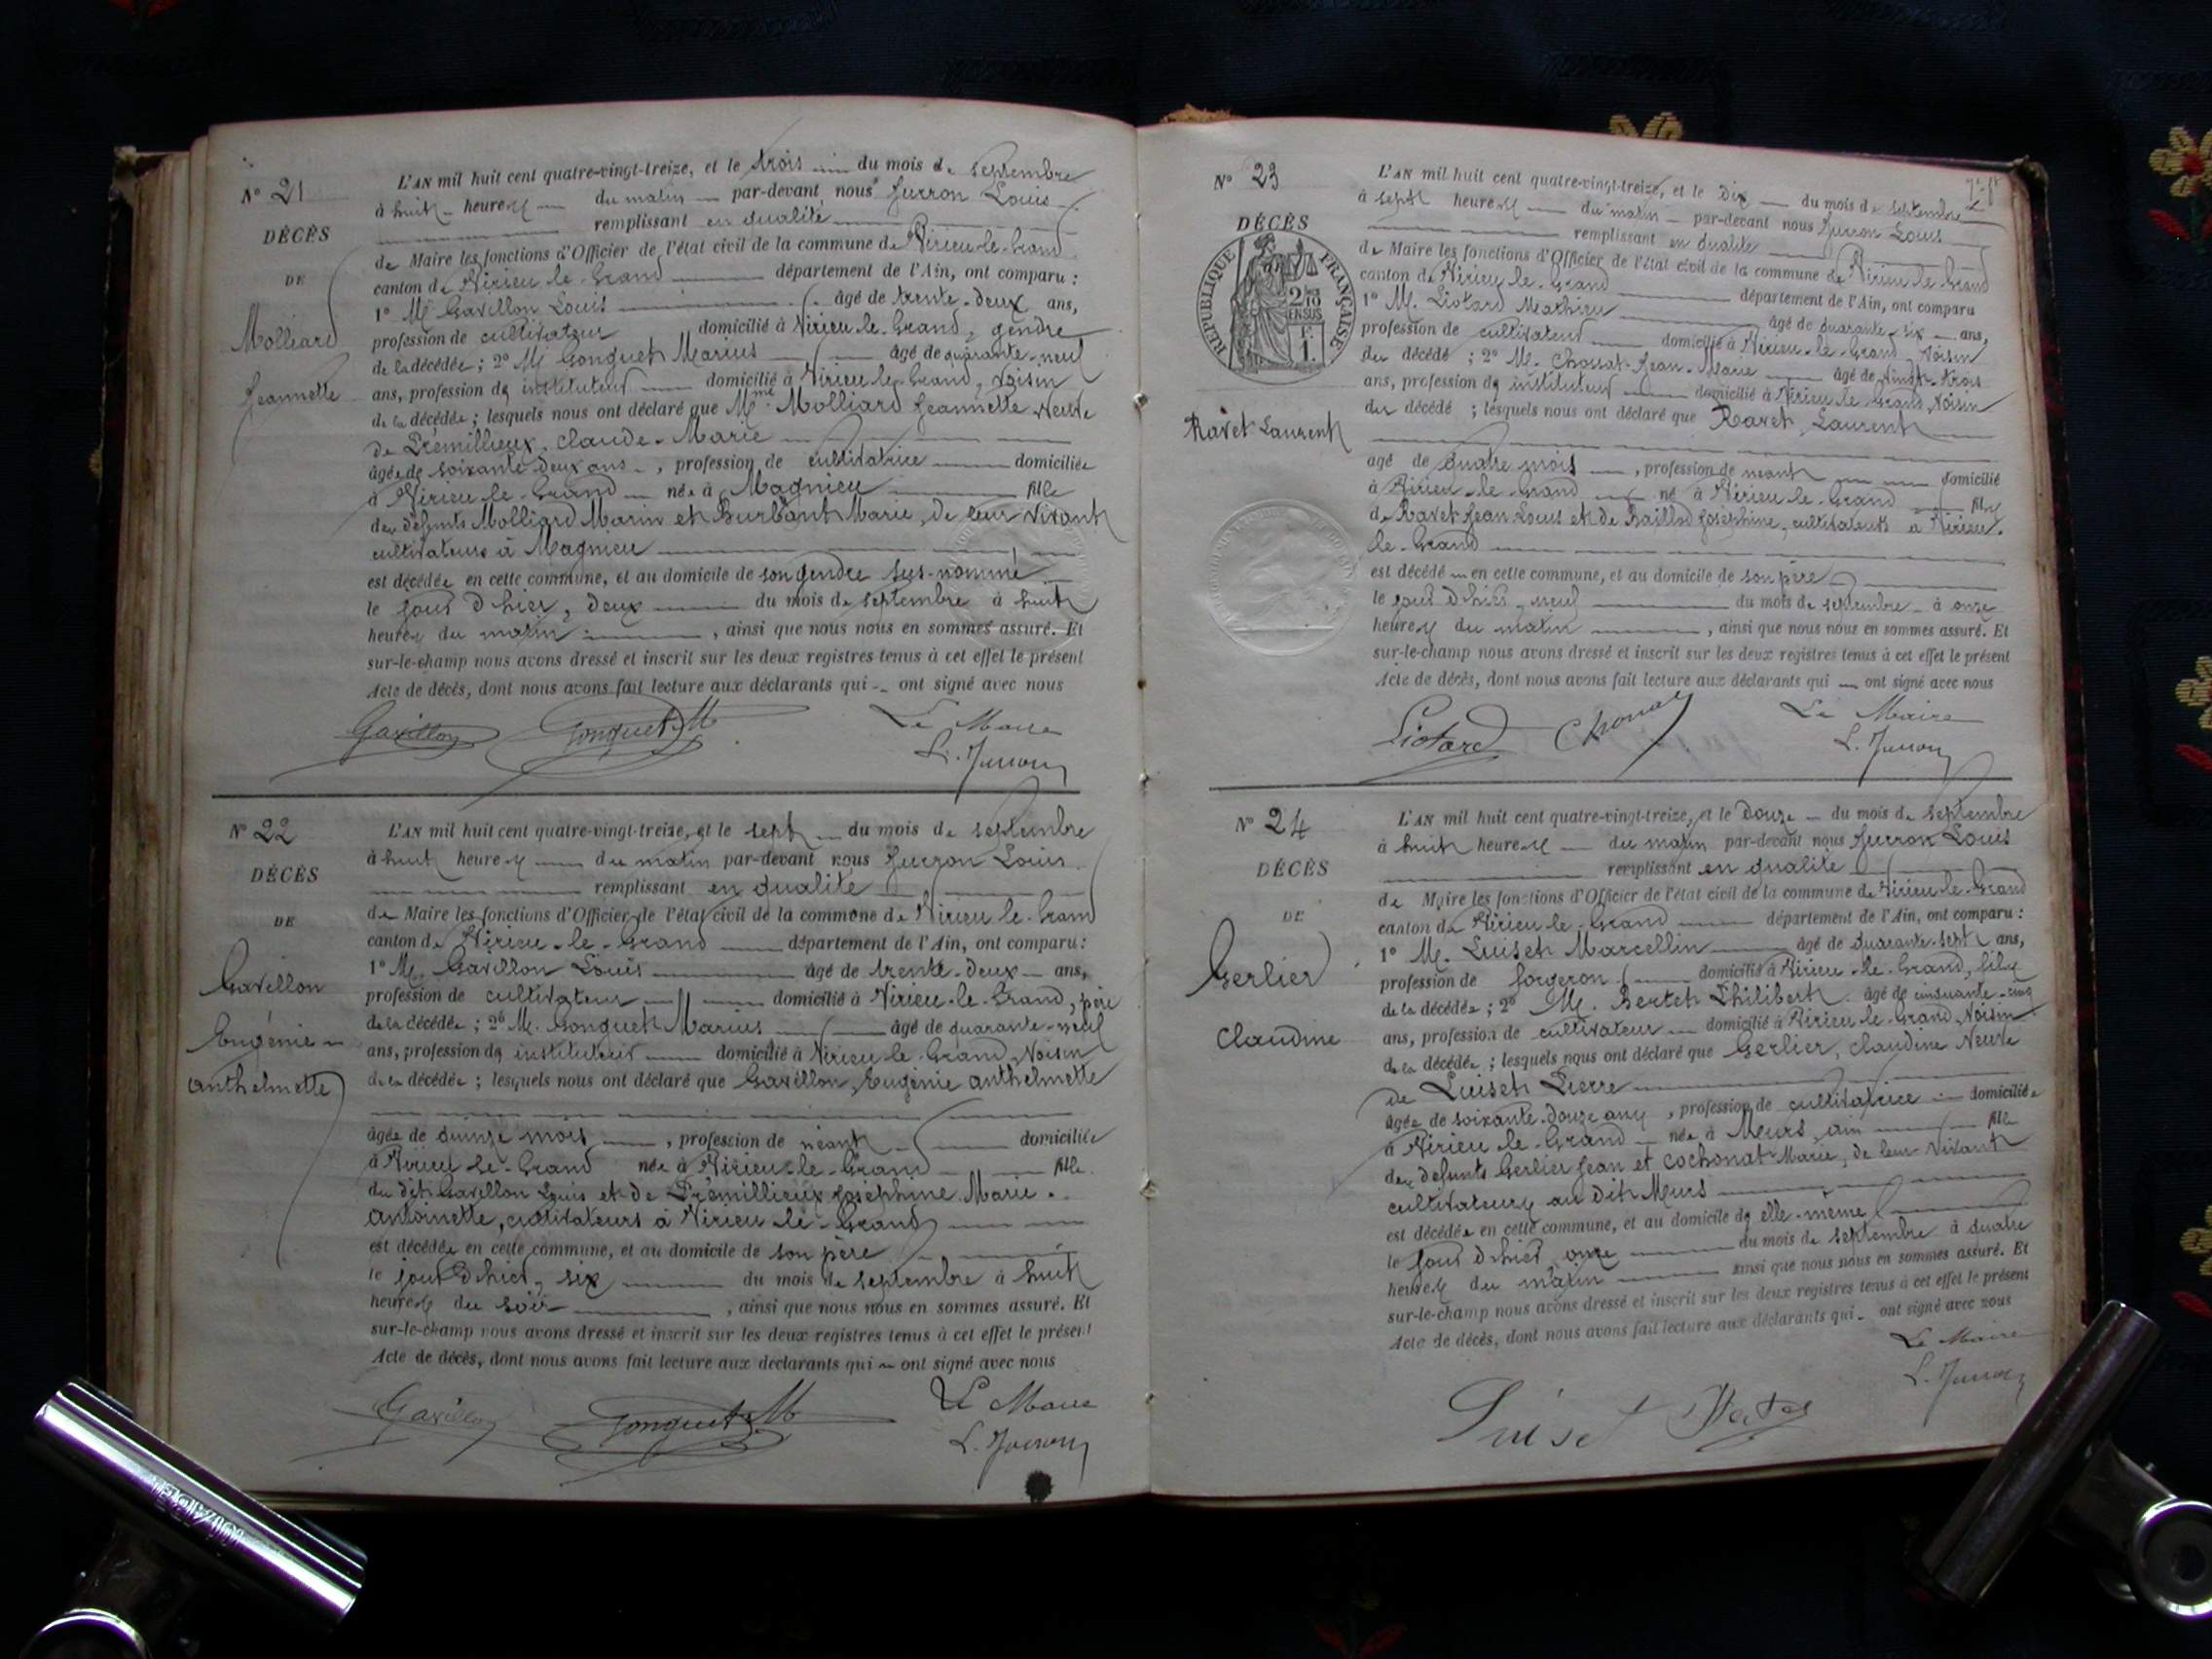 N° 21
DÉCÈS
DE
Molliard
Jeannette
L'AN mil huit cent quatre-vingt-treize, et le trois du mois de septembre
à huit heures du matin par-devant nous Juron Louis
remplissant en qualité
de Maire les fonctions d'Officier de l'état civil de la commune de Virieu-le-Grand
canton de Virieu-le-Grand département de l'Ain, ont comparu :
1° M. Gavillon Louis âgé de trente-deux ans,
profession de cultivateur domicilié à Virieu-le-Grand, gendre
de la décédée ; 2° M. Gonguet Marius âgé de quarante-neuf
ans, profession de instituteur domicilié à Virieu-le-Grand, voisin
de la décédée ; lesquels nous ont déclaré que Mme Molliard Jeannette veuve
de Prémillieux, Claude-Marie
âgée de soixante deux ans, profession de cultivatrice domiciliée
à Virieu-le-Grand née à Magnieu fille
des défunts Molliard Marin et Marie, de leur vivant
cultivateurs à Magnieu
est décédée en cette commune, et au domicile de son gendre sus-nommé
le jour d'hier, deux du mois de septembre à huit
heures du matin, ainsi que nous nous en sommes assuré. Et
sur-le-champ nous avons dressé et inscrit sur les deux registres tenus à cet effet le présent
Acte de décès, dont nous avons fait lecture aux déclarants qui ont signé avec nous
Gavillon Gonguet M Le Maire
L. Juron
N° 22
DÉCÈS
DE
Gavillon
Eugénie
anthelmette
L'AN mil huit cent quatre-vingt-treize, et le sept du mois de septembre
à huit heures du matin par-devant nous Juron Louis
remplissant en qualité
de Maire les fonctions d'Officier de l'état civil de la commune de Virieu-le-Grand
canton de Virieu-le-Grand département de l'Ain, ont comparu :
1° M. Gavillon Louis âgé de trente-deux ans,
profession de cultivateur domicilié à Virieu-le-Grand, père
de la décédée ; 2° M. Gonguet Marius âgé de quarante-neuf
ans, profession de instituteur domicilié à Virieu-le-Grand, voisin
de la décédée ; lesquels nous ont déclaré que Gavillon, Eugénie anthelmette
âgée de quinze mois, profession de néant domiciliée
à Virieu-le-Grand née à Virieu-le-Grand fille
du dit Gavillon Louis et de Prémillieux Joséphine Marie-
antoinette, cultivateurs à Virieu-le-Grand
est décédée en cette commune, et au domicile de son père
le jour d'hier, six du mois de septembre à huit
heures du soir, ainsi que nous nous en sommes assuré. Et
sur-le-champ nous avons dressé et inscrit sur les deux registres tenus à cet effet le présent
Acte de décès, dont nous avons fait lecture aux déclarants qui ont signé avec nous
Gavillon Gonguet M Le Maire
L. Juron
N° 23
DÉCÈS
RÉPUBLIQUE FRANÇAISE
2/10
EN SUS
Ravet Laurent
L'AN mil huit cent quatre-vingt-treize, et le dix du mois de septembre
à sept heures du matin par-devant nous Juron Louis
remplissant en qualité
de Maire les fonctions d'Officier de l'état civil de la commune de Virieu-le-Grand
canton de Virieu-le-Grand département de l'Ain, ont comparu
1° M. Liotard Mathieu âgé de quarante-six ans,
profession de cultivateur domicilié à Virieu-le-Grand, voisin
du décédé ; 2° M. Chossat Jean-Marie âgé de vingt-trois
ans, profession de instituteur domicilié à Virieu-le-Grand, voisin
du décédé ; lesquels nous ont déclaré que Ravet, Laurent
agé de quatre mois, profession de néant domicilié
à Virieu-le-Grand né à Virieu-le-Grand fils
de Ravet Jean Louis et de Baillod Joséphine, cultivateurs à Virieu-
le-Grand
est décédé en cette commune, et au domicile de son père
le jour d'hier, neuf du mois de septembre à onze
heures du matin, ainsi que nous nous en sommes assuré. Et
sur-le-champ nous avons dressé et inscrit sur les deux registres tenus à cet effet le présent
Acte de décès, dont nous avons fait lecture aux déclarants qui ont signé avec nous
Liotard Chossat Le Maire
L. Juron
N° 24
DÉCÈS
DE
Gerlier
Claudine
L'AN mil huit cent quatre-vingt-treize, et le douze du mois de septembre
à huit heures du matin par-devant nous Juron Louis
remplissant en qualité
de Maire les fonctions d'Officier de l'état civil de la commune de Virieu-le-Grand
canton de Virieu-le-Grand département de l'Ain, ont comparu :
1° M. Luiset Marcellin âgé de quarante-sept ans,
profession de forgeron domicilié à Virieu-le-Grand, fils
de la décédée ; 2° M. Bertet Philibert âgé de cinquante-cinq
ans, profession de cultivateur domicilié à Virieu-le-Grand, voisin
de la décédée ; lesquels nous ont déclaré que Gerlier, Claudine veuve
de Luiset Pierre
âgée de soixante-douze ans, profession de cultivatrice domiciliée
à Virieu-le-Grand née à Meurs, ain fille
des défunts Gerlier Jean et Cochonat Marie, de leur vivant
cultivateurs au dit Murs
est décédée en cette commune, et au domicile de elle-même
le jour d'hier, onze du mois de septembre à quatre
heures du matin ainsi que nous nous en sommes assuré. Et
sur-le-champ nous avons dressé et inscrit sur les deux registres tenus à cet effet le présent
Acte de décès, dont nous avons fait lecture aux déclarants qui ont signé avec nous
Le Maire
Luiset Bertet L. Juron